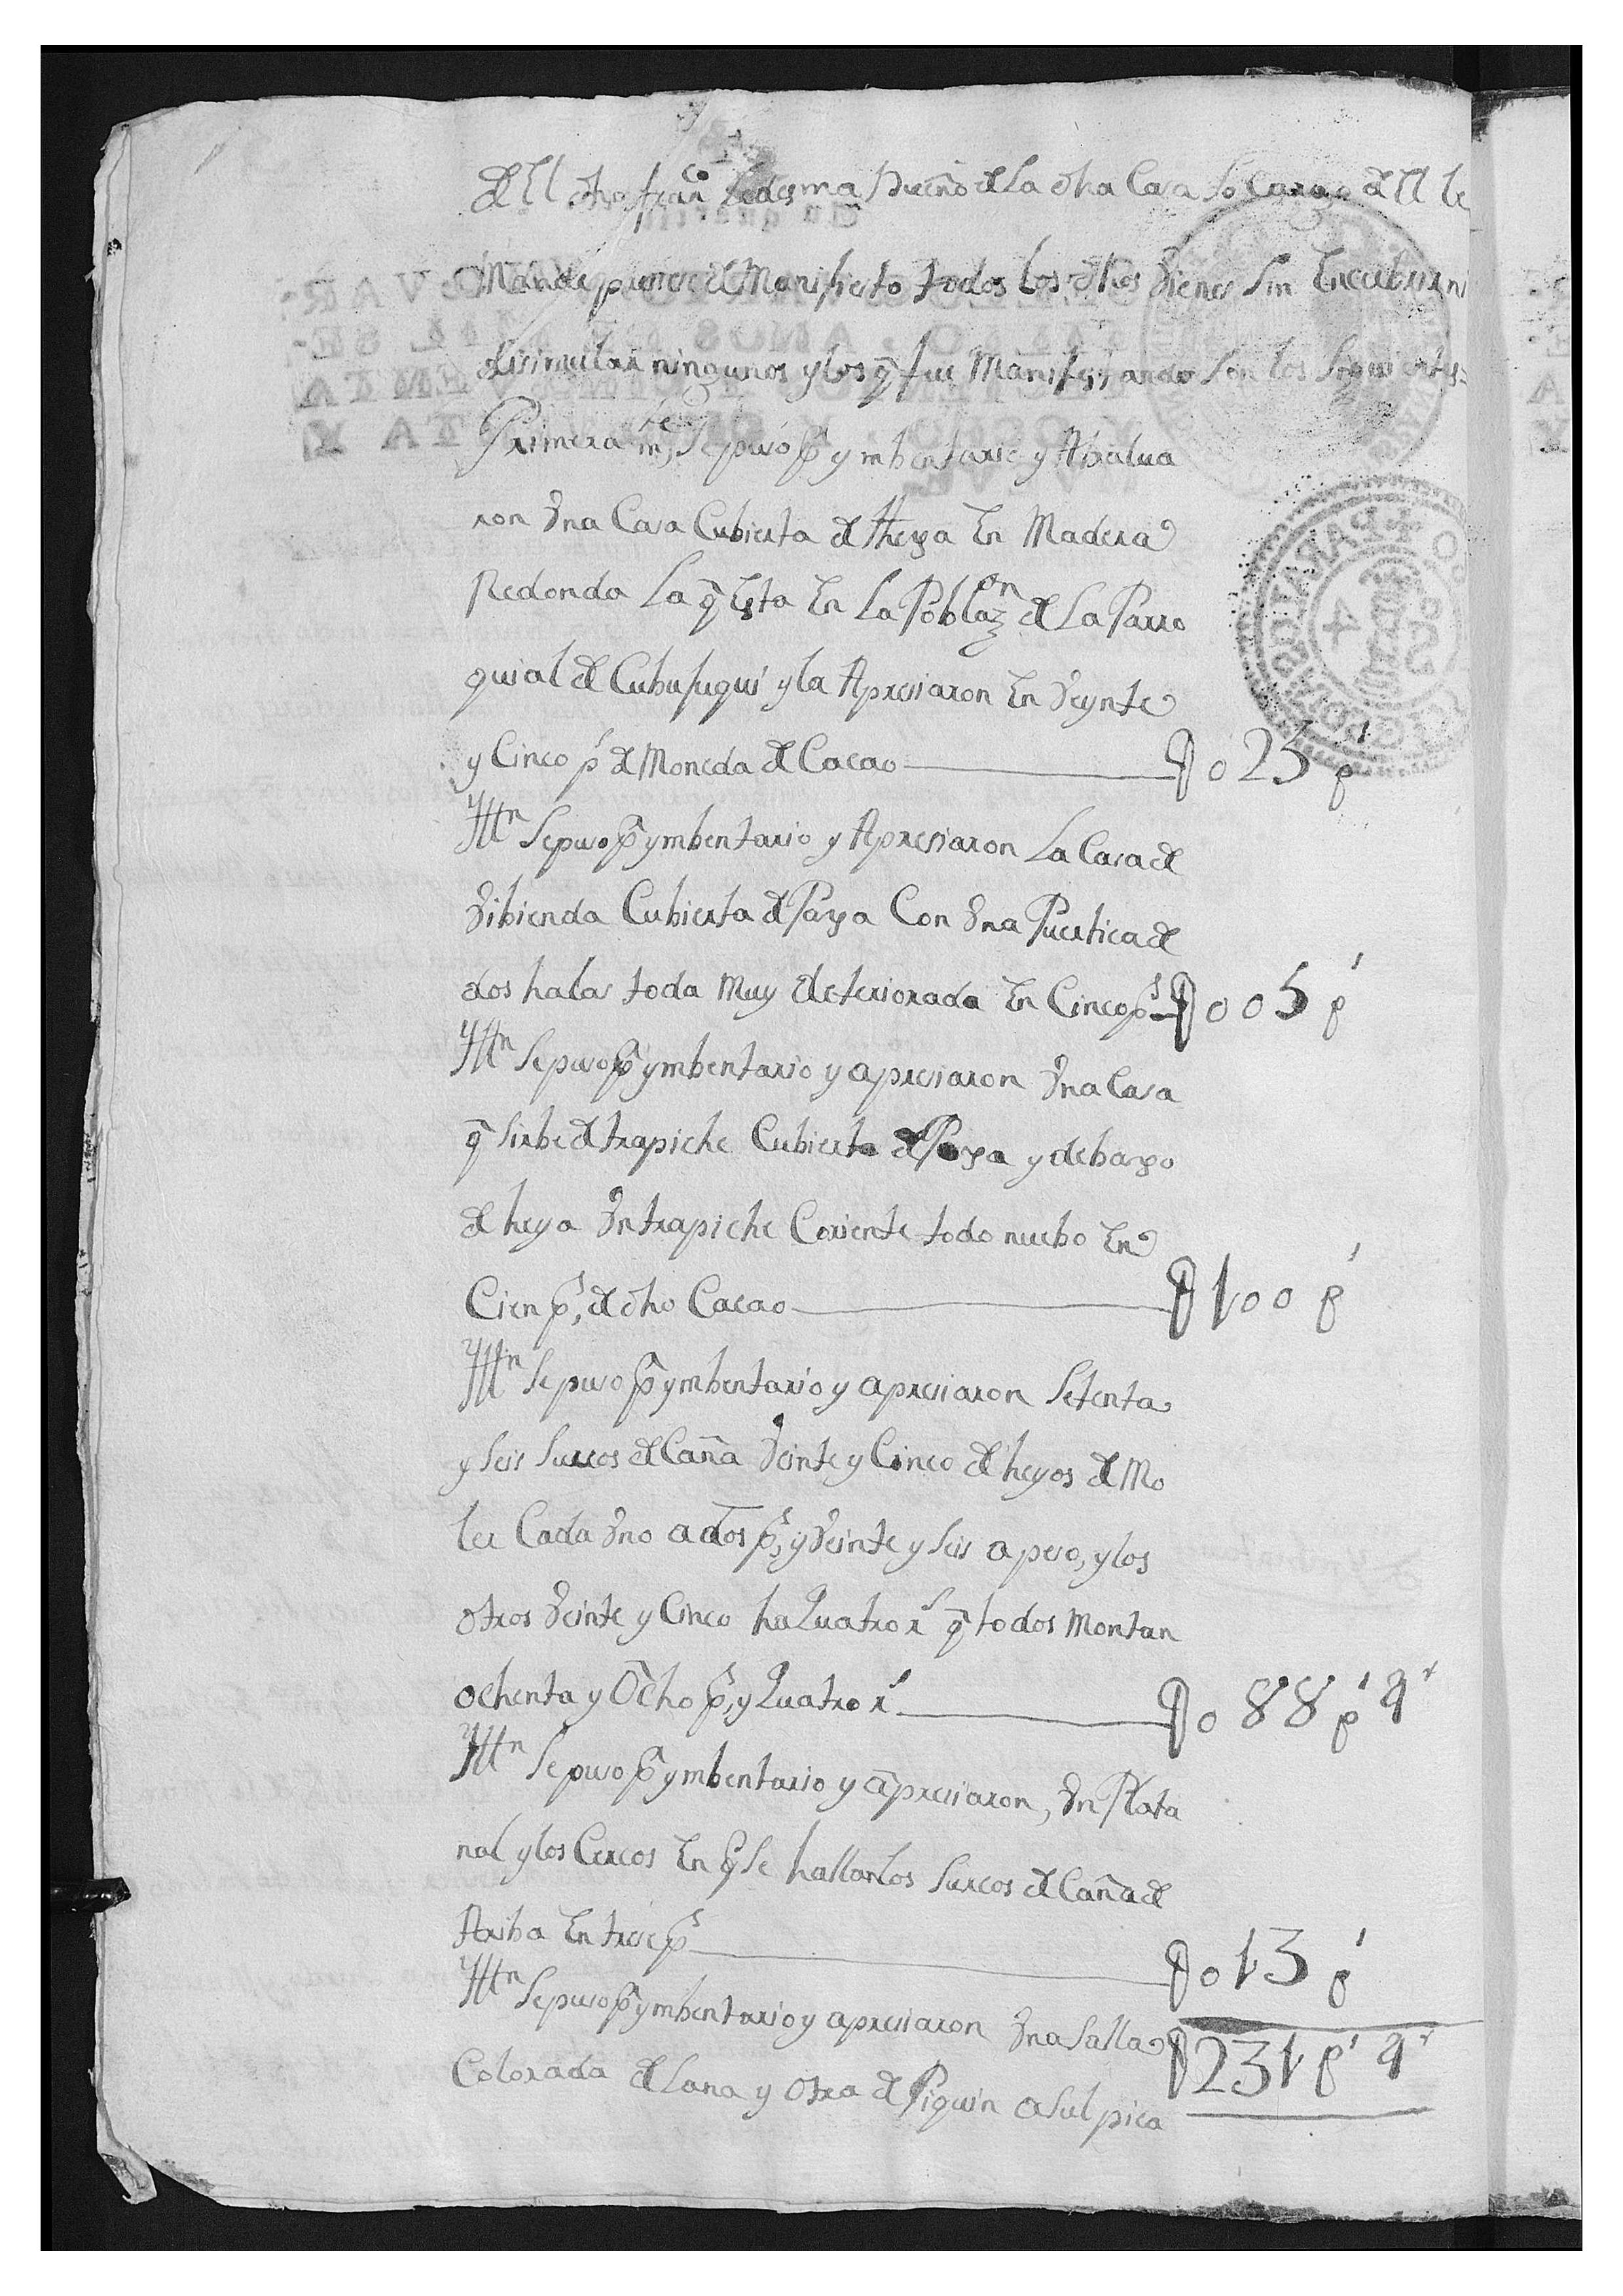 de El dho franco Ledesma Dueño de La dha Casa so Cargo de El le
Mande pusiese de Manifiesto todos los dhos Vienes sin Encubrir ni
disimular ningunos y los q fue Manifestando son los siguientes
Primera mte se puso pr ymbentario y Abalua
ron Vna Casa Cubierta de Theja En Madera
Redonda La q Esta En La Poblazon de La Parro
quial de Cubujuqui y la Apresiaron En Veynte
y Cinco ps de Moneda de Cacao — 025 ps
Yttn se puso pr ymbentario y Apresiaron La Casa de
Vibienda Cubierta de Paja Con Vna Puertica de
dos halas toda Muy deteriorada En Cinco ps 005 ps
Yttn se puso pr ymbentario y apresiaron Vna Casa
q sirbe de trapiche Cubierta de Paja y debajo
de heya Vn trapiche Coriente todo nuebo En
Cien ps, de dho Cacao — 100 ps
Yttn se puso pr ymbentario y apresiaron Setenta
y seis surcos de Caña Veinte y Cinco de heyos de Mo
ler Cada Vno a dos ps, y Veinte y seis a peso, y los
otros Veinte y Cinco ha Quatro rs q todos Montan
ochenta y Ocho ps, y Quatro rs — 088 ps 4r
Yttn se puso pr ymbentario y apresiaron, Vn Plata
nal y los Cercos En q se hallan los surcos de Caña de
Ariba En trese ps — 013 ps
Yttn se puso pr ymbentario y apresiaron Vna salla 231 ps 4r
Colorada de Lana y Otra de Piquin asul pica